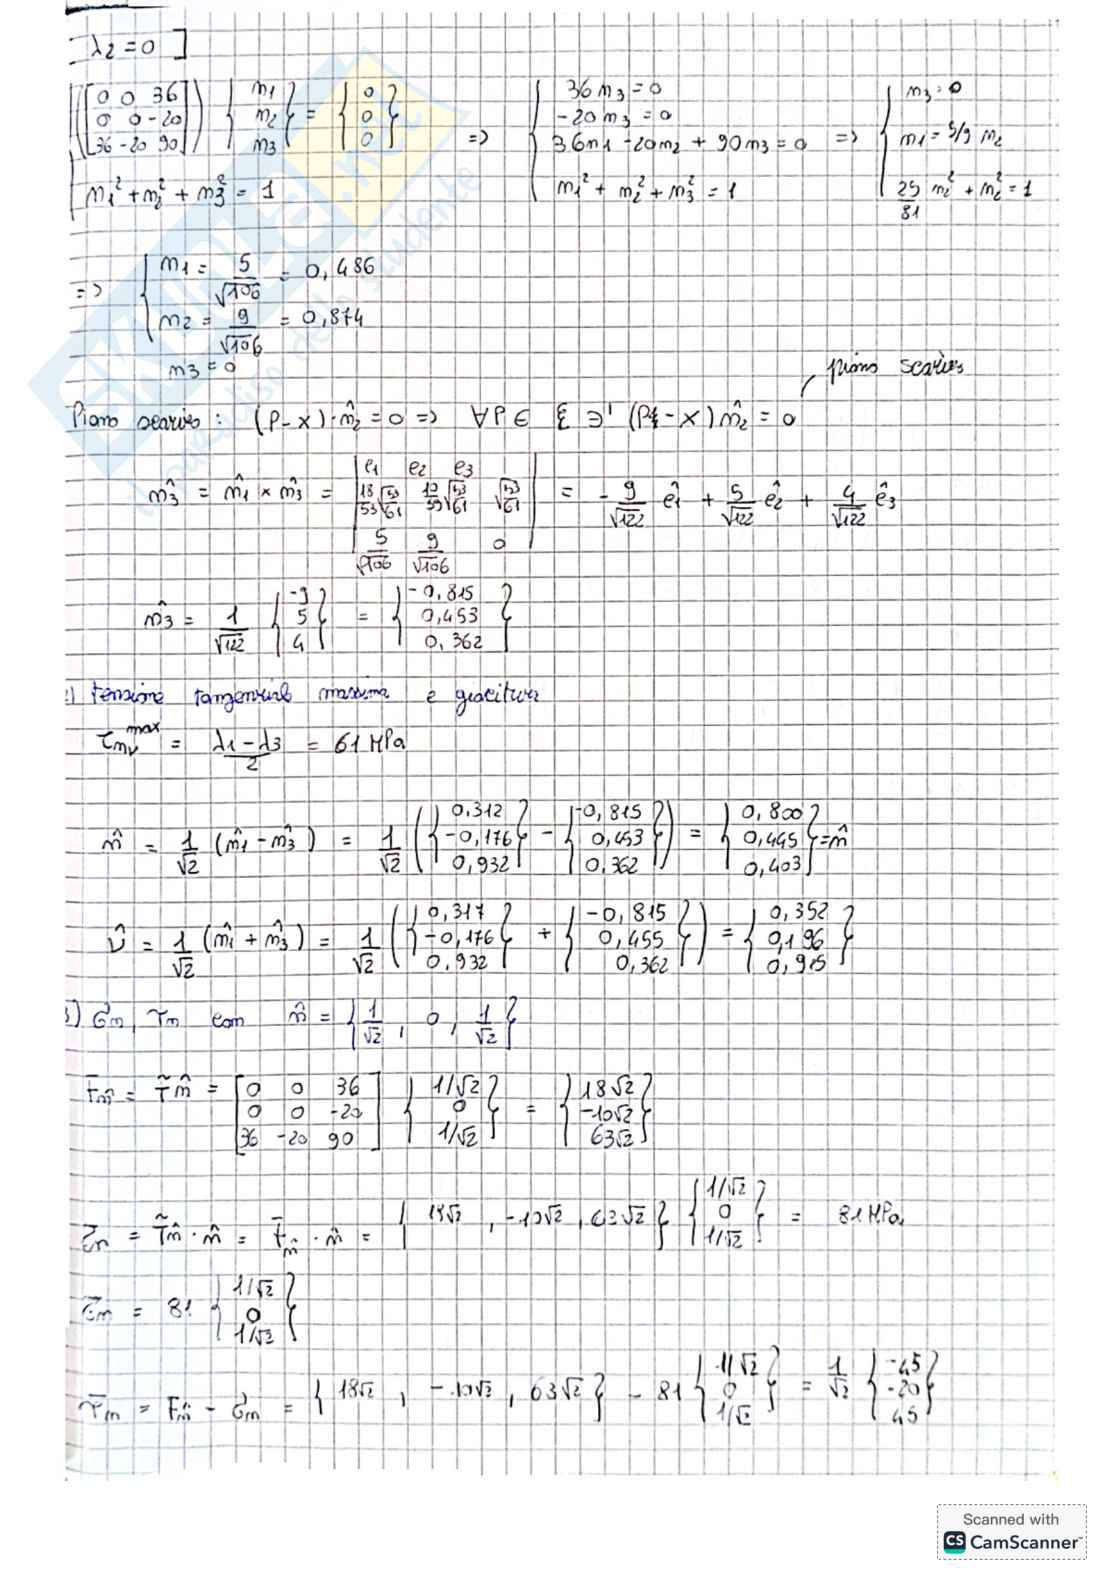 λ2 = 0 ]
[0 0 36; 0 0 -20; 36 -20 90] {n1 n2 n3} = {0 0 0} => { 36 n3 = 0; -20 n3 = 0; 36n1 -20n2 + 90n3 = 0; n1² + n2² + n3² = 1 => { n3 = 0; n1 = 5/9 n2; 25/81 n2² + n2² = 1
n1² + n2² + n3² = 1
=> { n1 = 5/√106 = 0,486
n2 = 9/√106 = 0,874
n3 = 0
piano scarico
Piano scarico : (P - X) · n̂2 = 0 => ∀P ∈ ξ ∋' (Pξ - X) n̂2 = 0
n̂3 = n̂1 × n̂3 = | e1 e2 e3; 18/53 √53/61 10/53 √53/61 √53/61; 5/√106 9/√106 0 | = - 9/√122 ê1 + 5/√122 ê2 + 4/√122 ê3
n̂3 = 1/√122 {-9 5 4} = {-0,815 0,453 0,362}
) tensione tangenziale massima e giacitura
τnν max = λ1 - λ3 / 2 = 61 MPa
n̂ = 1/√2 (n̂1 - n̂3) = 1/√2 ({0,312 -0,176 0,932} - {-0,815 0,453 0,362}) = {0,800 0,445 0,403} = n̂
ν̂ = 1/√2 (n̂1 + n̂3) = 1/√2 ({0,317 -0,176 0,932} + {-0,815 0,455 0,362}) = {0,352 0,196 0,915}
3) σn, τn con n̂ = {1/√2, 0, 1/√2}
Fn̂ = T̃ n̂ = [0 0 36; 0 0 -20; 36 -20 90] {1/√2 0 1/√2} = {18√2 -10√2 63√2}
σn = T̃n̂ · n̂ = t̄n̂ · n̂ = {18√2, -10√2, 63√2} {1/√2 0 1/√2} = 81 MPa
σ̄n = 81 {1/√2 0 1/√2}
τ̄n = F̄n̂ - σ̄n = {18√2, -10√2, 63√2} - 81 {1/√2 0 1/√2} = 1/√2 {-45 -20 45}
SKUOLA.net
il paradiso dello studente
Scanned with
CS CamScanner